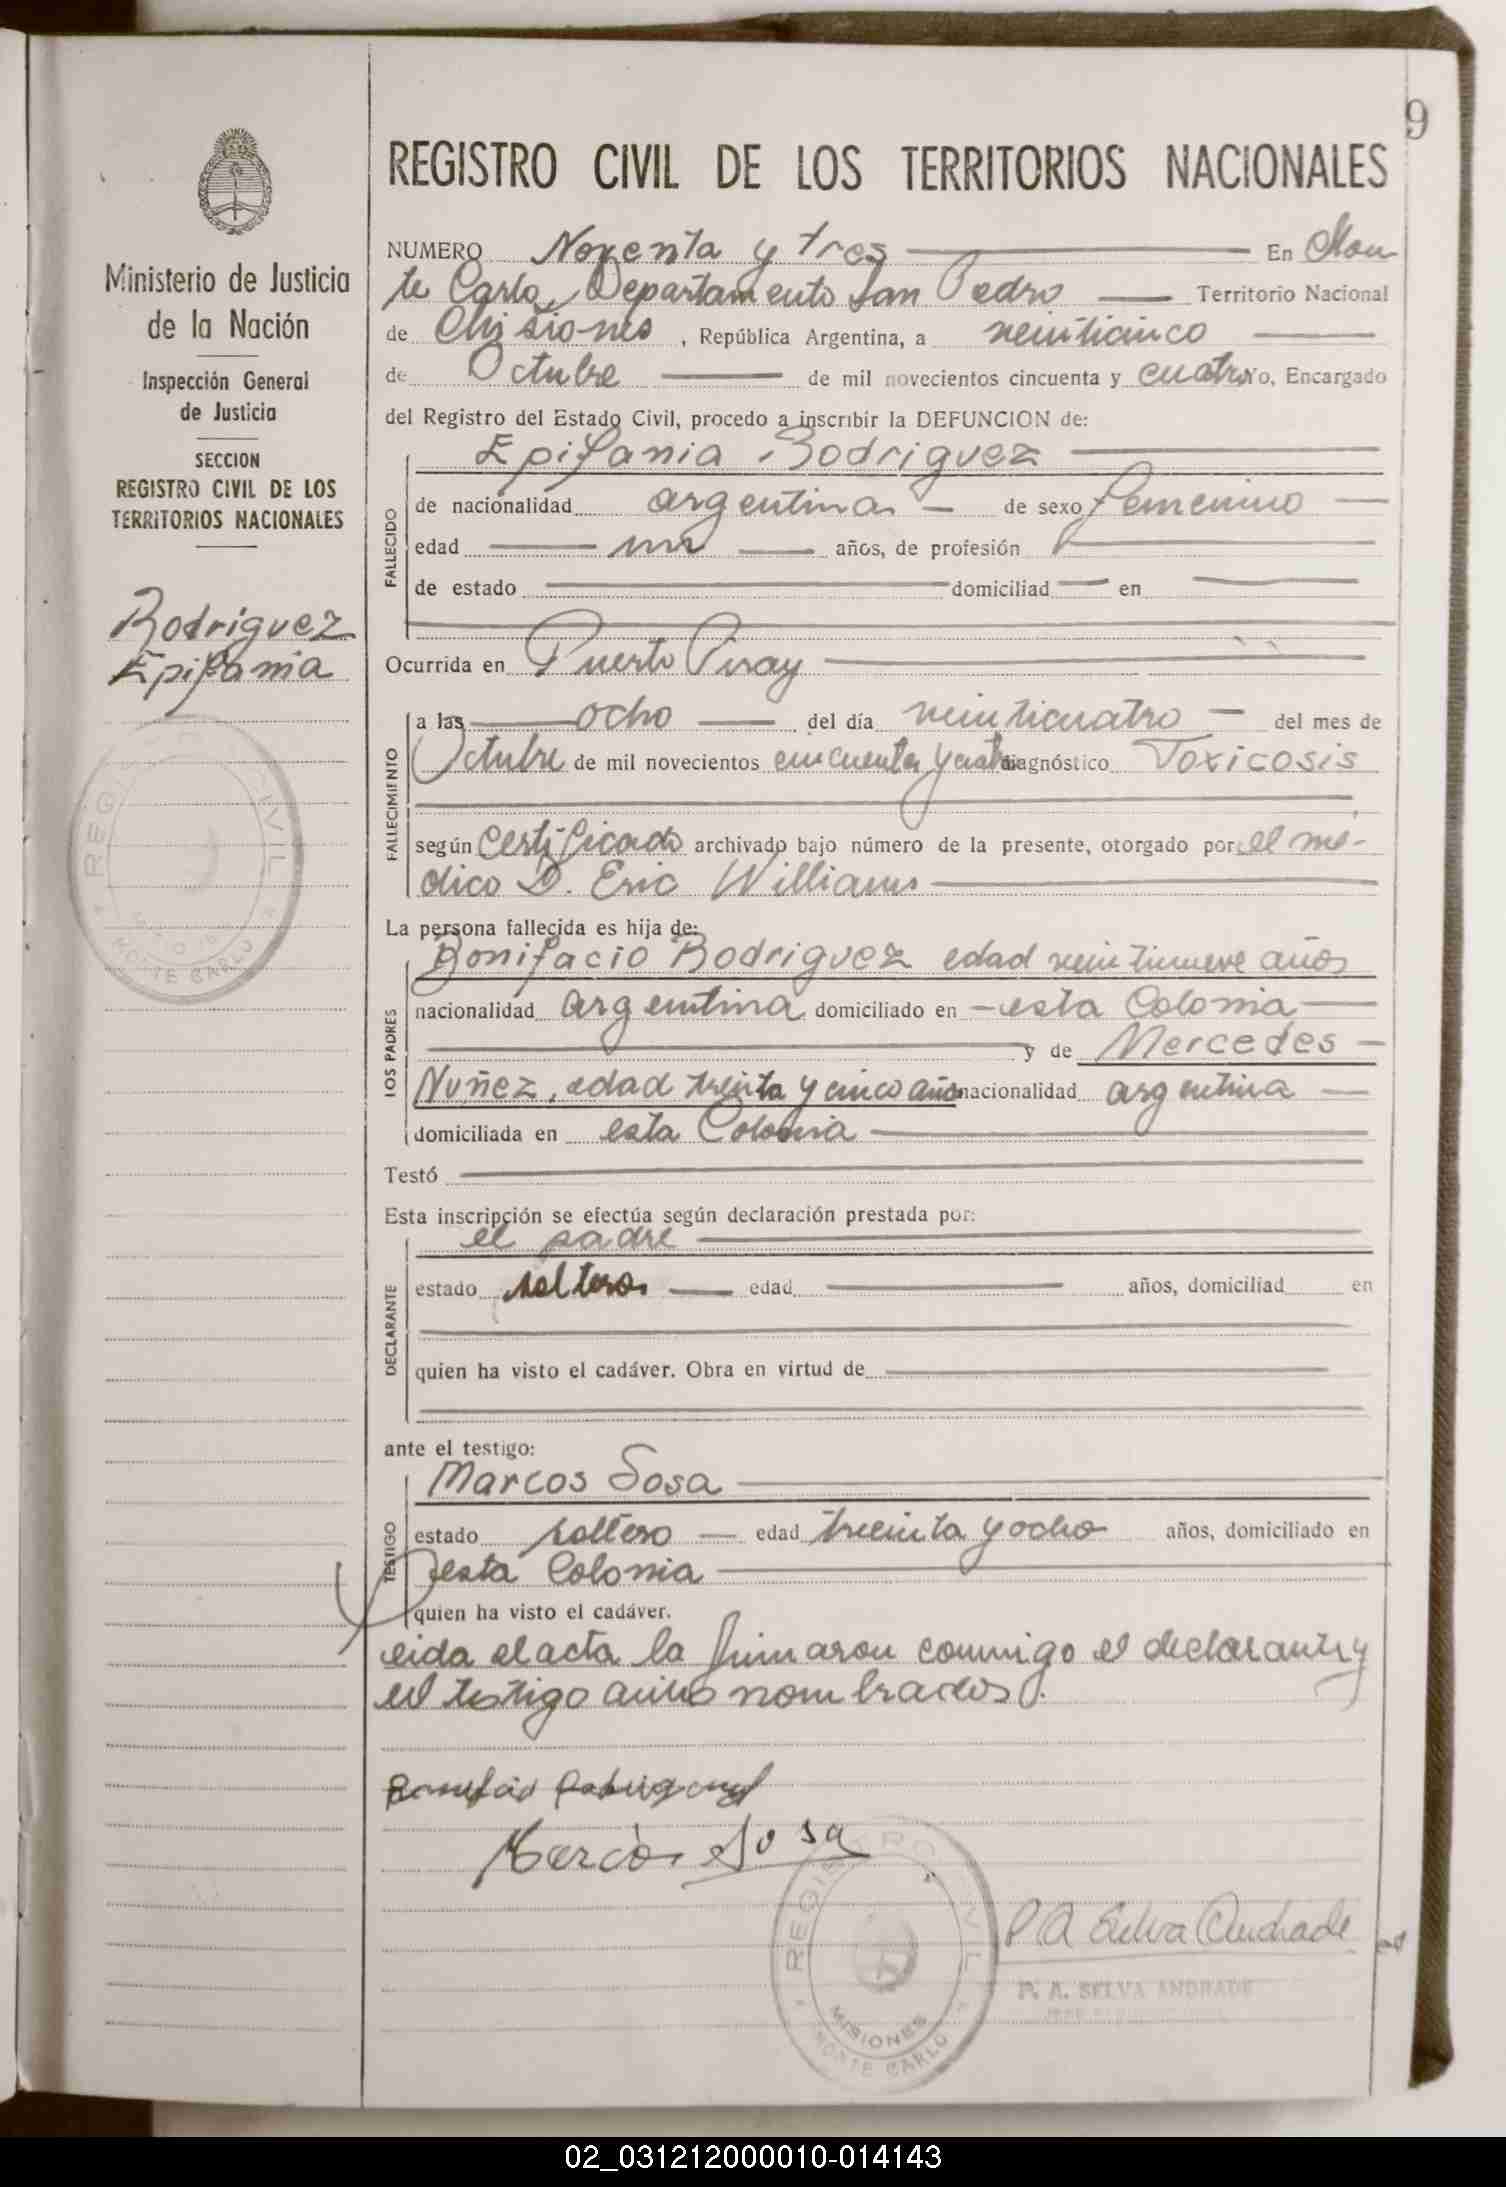 9
Ministerio de Justicia
de la Nación
Inspección General
de Justicia
SECCION
REGISTRO CIVIL DE LOS
TERRITORIOS NACIONALES
Rodriguez
Epifania
REGISTRO CIVIL
MONTE CARLO
REGISTRO CIVIL DE LOS TERRITORIOS NACIONALES
NUMERO Noventa y tres En Mon
te Carlo, Departamento San Pedro Territorio Nacional
de Misiones, República Argentina, a veinticinco
de Octubre de mil novecientos cincuenta y cuatro Yo, Encargado
del Registro del Estado Civil, procedo a inscribir la DEFUNCION de:
Epifania Rodriguez
FALLECIDO
de nacionalidad argentina de sexo femenino
edad un años, de profesión
de estado domiciliad en
Ocurrida en Puerto Piray
FALLECIMIENTO
a las ocho del día veinticuatro del mes de
Octubre de mil novecientos cincuenta y cuatro diagnóstico Toxicosis
según certificado archivado bajo número de la presente, otorgado por el mé-
dico D. Eric Williams
La persona fallecida es hija de:
LOS PADRES
Bonifacio Rodriguez edad veintinueve años
nacionalidad argentina domiciliado en esta Colonia
y de Mercedes
Nuñez, edad treinta y cinco años nacionalidad argentina
domiciliada en esta Colonia
Testó
Esta inscripción se efectúa según declaración prestada por:
el padre
DECLARANTE
estado soltero edad años, domiciliad en
quien ha visto el cadáver. Obra en virtud de
ante el testigo:
Marcos Sosa
TESTIGO
estado soltero edad treinta y ocho años, domiciliado en
esta Colonia
quien ha visto el cadáver.
Leida el acta la firmaron conmigo el declarante y
el testigo arriba nombrados.
Bonifacio Rodriguez
Marcos Sosa
REGISTRO CIVIL
MISIONES
MONTE CARLO
P A Selva Andrade
P. A. SELVA ANDRADE
02_031212000010-014143